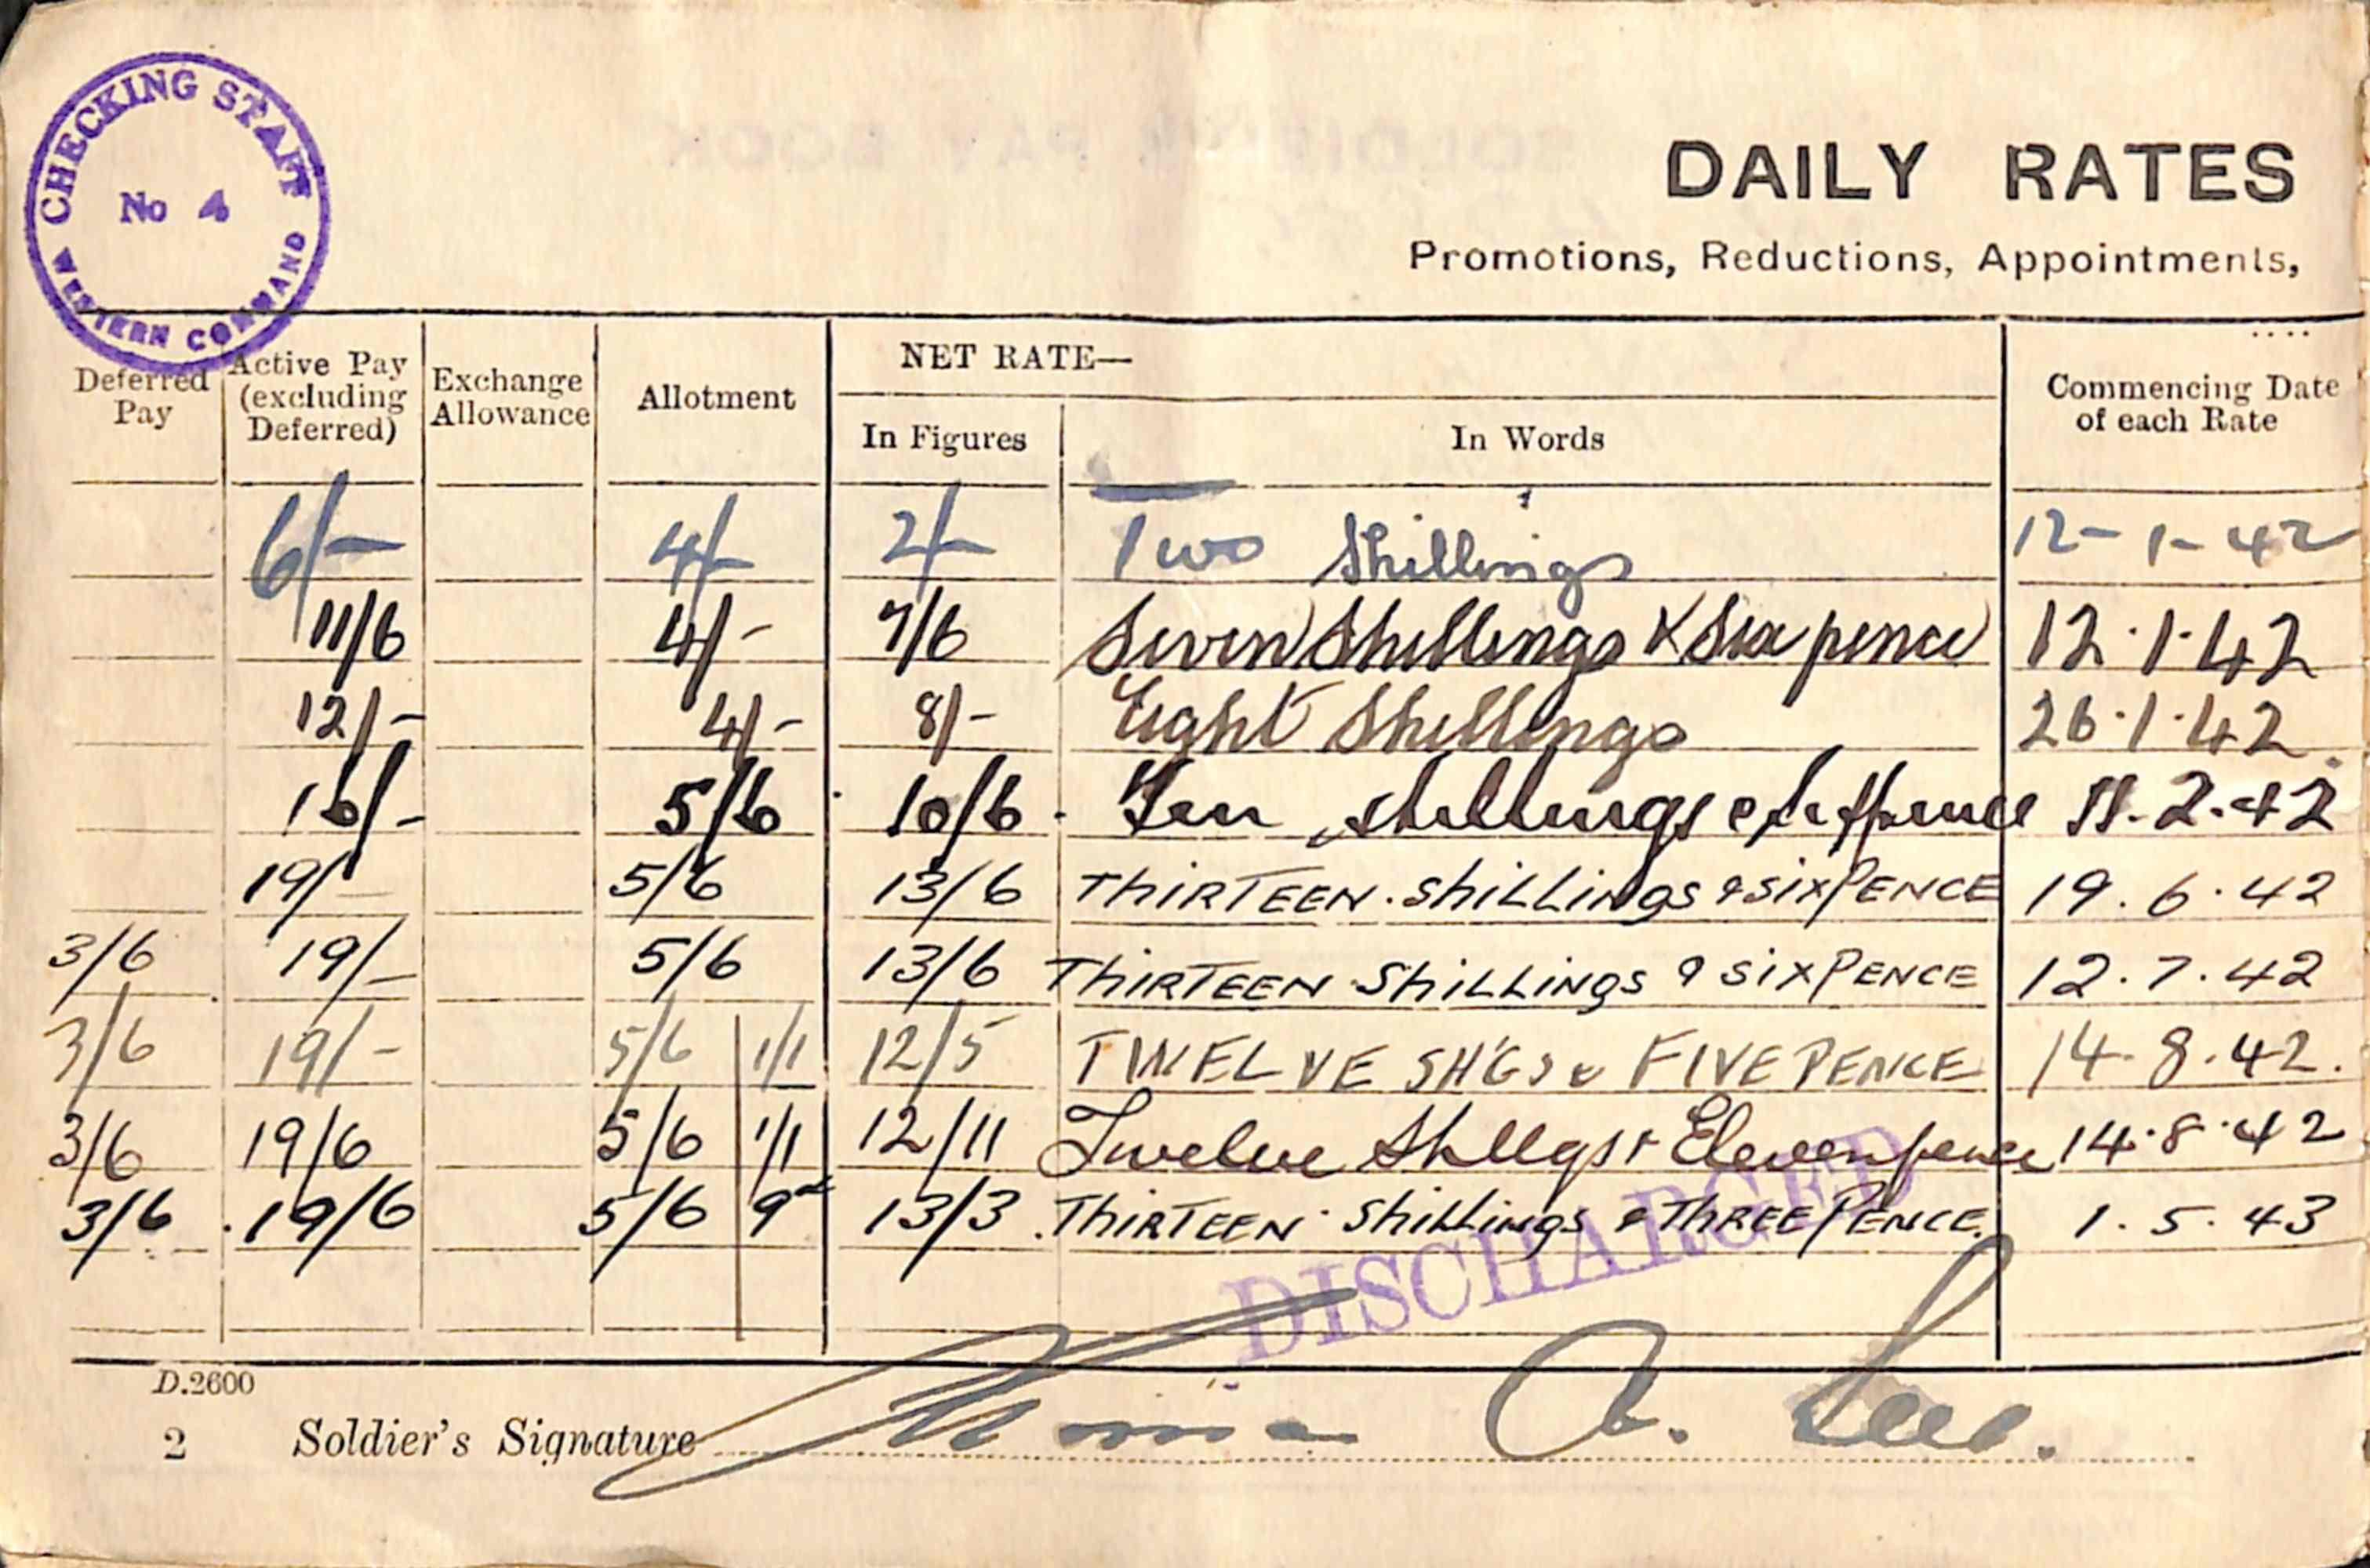 CHECKING STAFF
No 4
WESTERN COMMAND
SOLDIER'S PAY BOOK
DAILY RATES
Promotions, Reductions, Appointments,
Deferred Pay | Active Pay (excluding Deferred) | Exchange Allowance | Allotment | NET RATE— In Figures | In Words | Commencing Date of each Rate
6/- 4/- 2/- Two Shillings 12-1-42
11/6 4/- 7/6 Seven Shillings & Six pence 12.1.42
12/- 4/- 8/- Eight Shillings 26.1.42
16/- 5/6 10/6 Ten shillings & sixpence 11.2.42
19/- 5/6 13/6 THIRTEEN SHILLINGS & SIXPENCE 19.6.42
3/6 19/- 5/6 13/6 THIRTEEN SHILLINGS & SIXPENCE 12.7.42
3/6 19/- 5/6 1/1 12/5 TWELVE SH'GS & FIVE PENCE 14.8.42.
3/6 19/6 5/6 1/1 12/11 Twelve Shllgs & Eleven pence 14.8.42
3/6 19/6 5/6 9d 13/3 THIRTEEN SHILLINGS & THREEPENCE. 1.5.43
DISCHARGED
D.2600
2 Soldier's Signature A.